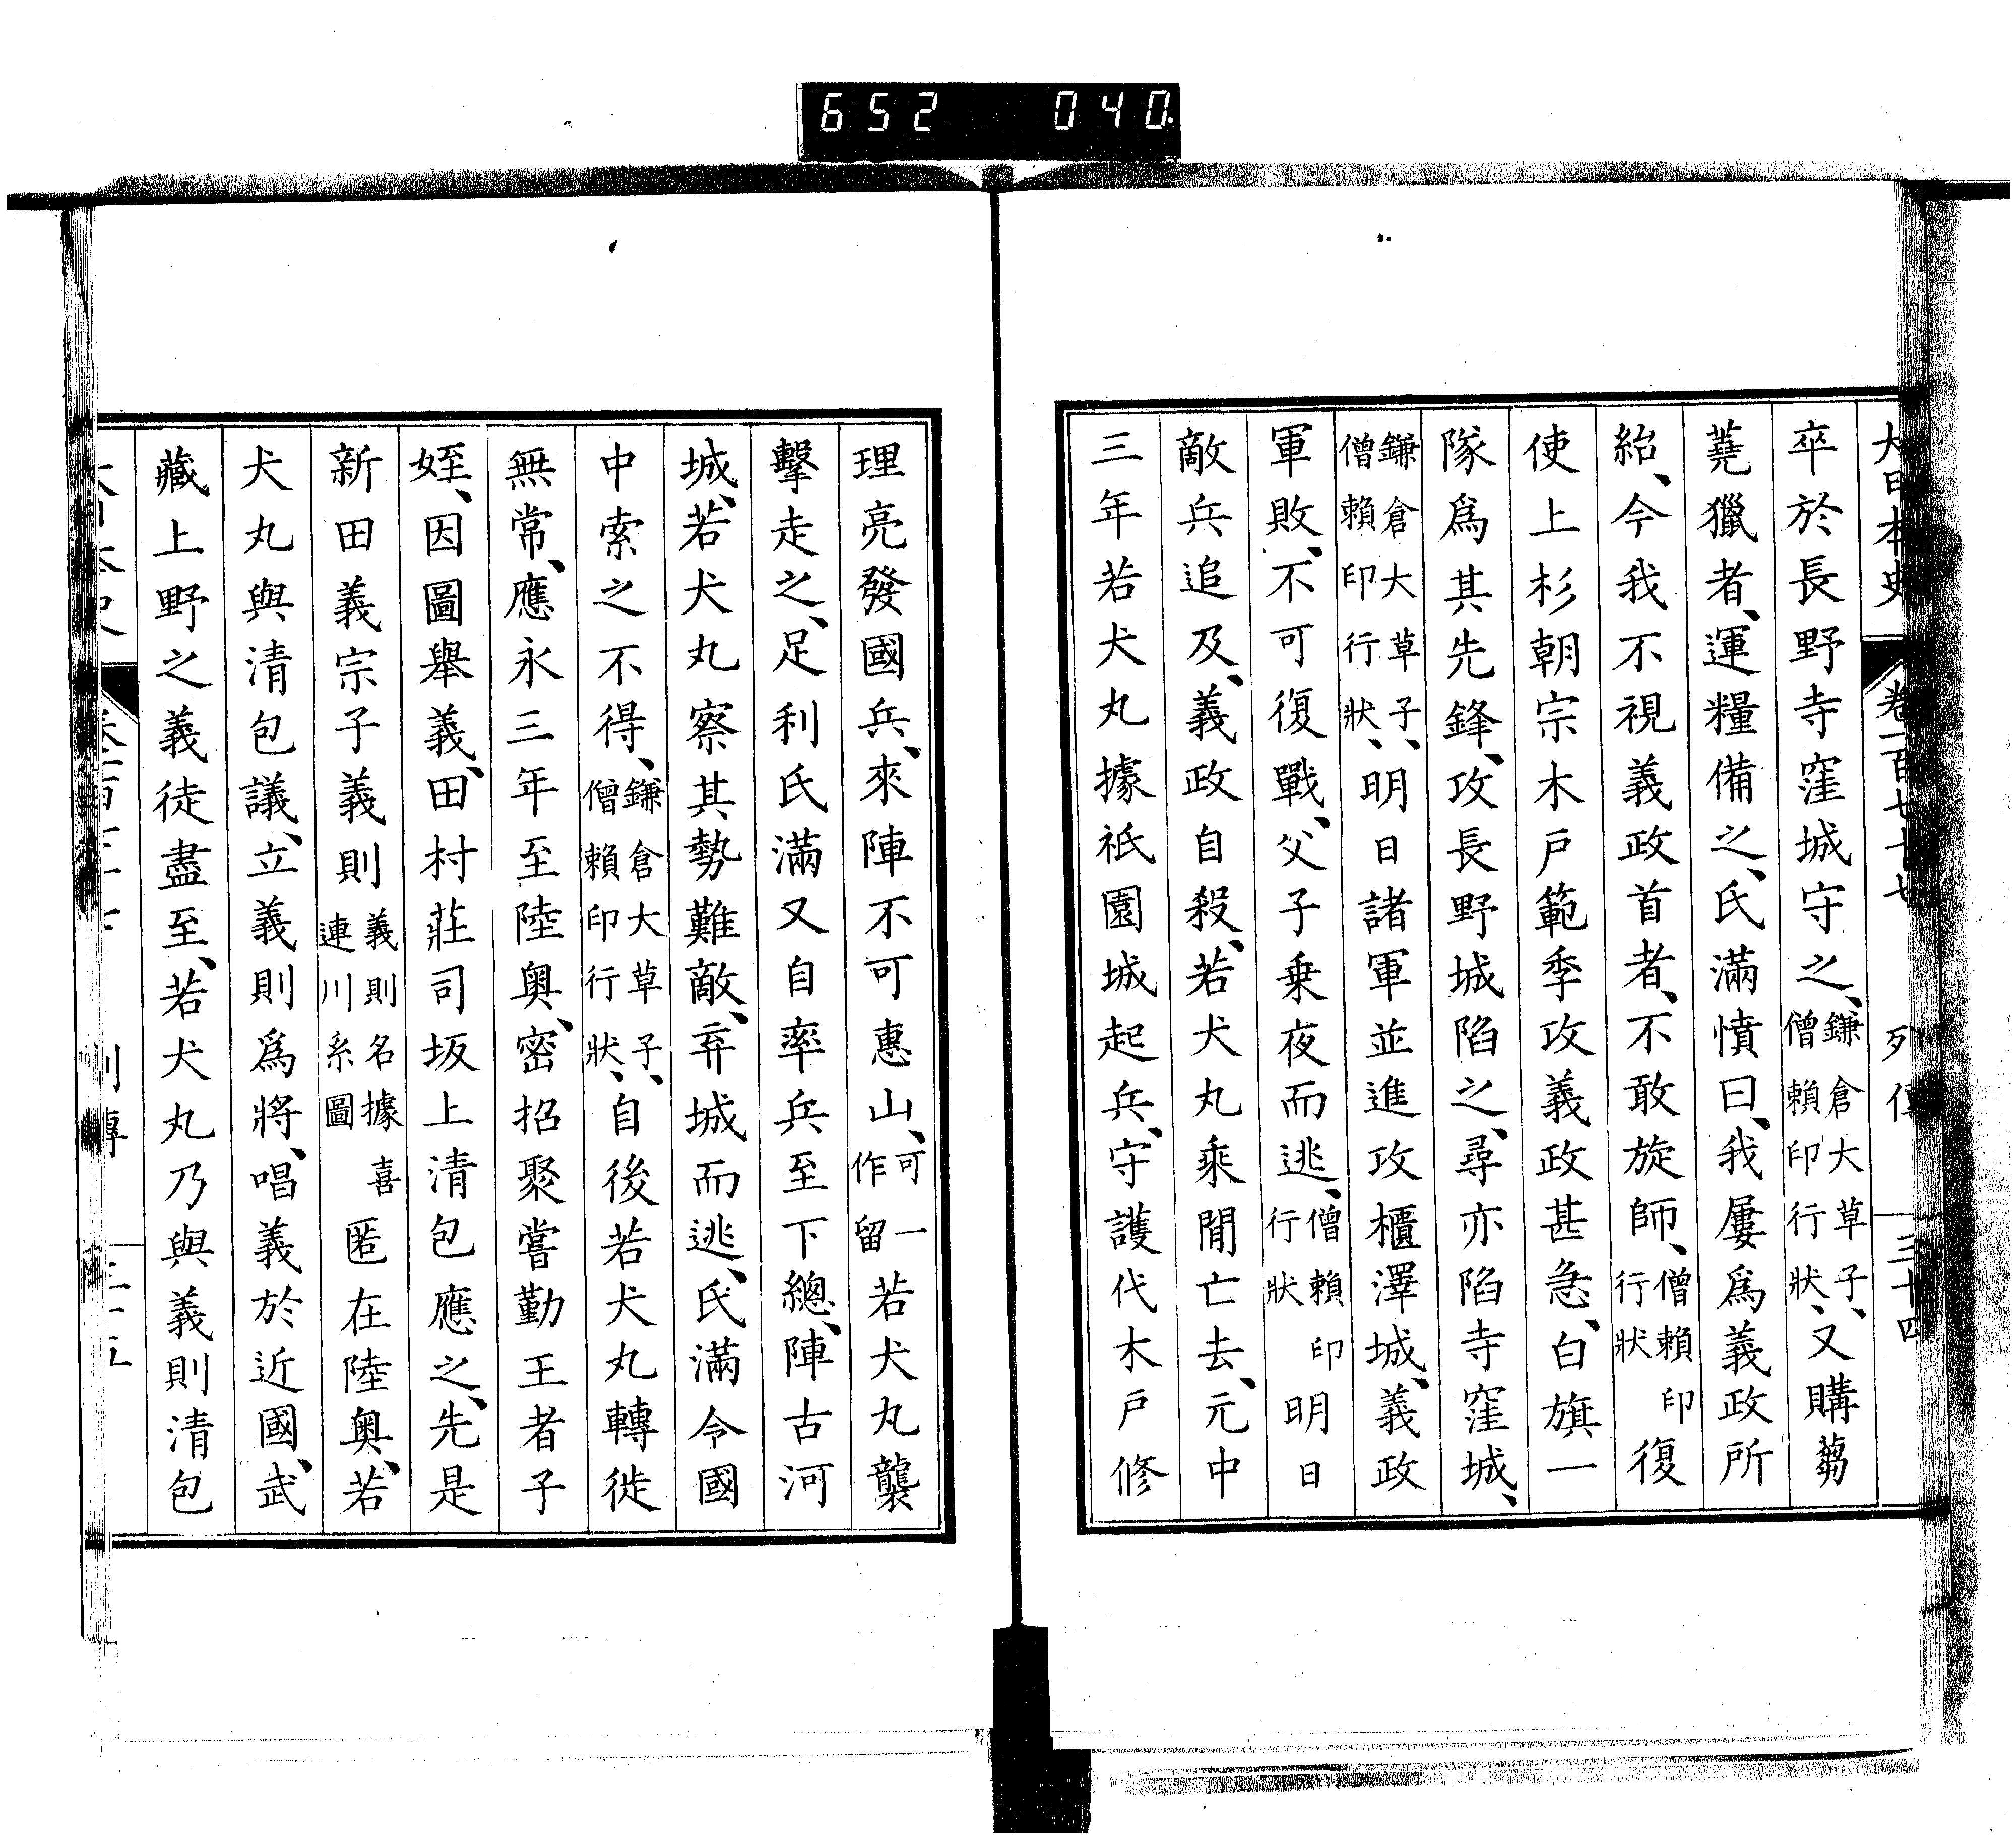 652 040
大日本史 卷一百七十七 列傳 三十四
卒於長野寺窪城守之、鎌倉大草子、僧賴印行狀、又購蒭
蕘獵者、運糧備之、氏滿憤曰、我屢爲義政所
紿、今我不視義政首者、不敢旋師、僧賴印行狀復
使上杉朝宗木戶範季攻義政甚急、白旗一
隊爲其先鋒、攻長野城陷之、尋亦陷寺窪城、
鎌倉大草子、僧賴印行狀、明日諸軍並進攻櫃澤城、義政
軍敗、不可復戰、父子乗夜而逃、僧賴印行狀明日
敵兵追及、義政自殺、若犬丸乘閒亡去、元中
三年若犬丸據祇園城起兵、守護代木戶修
理亮發國兵、來陣不可惠山、可一作留若犬丸襲
擊走之、足利氏滿又自率兵至下總、陣古河
城、若犬丸察其勢難敵、弃城而逃、氏滿令國
中索之不得、鎌倉大草子、僧賴印行狀、自後若犬丸轉徙
無常、應永三年至陸奥、密招聚嘗勤王者子
姪、因圖舉義、田村莊司坂上清包應之、先是
新田義宗子義則義則名據喜連川系圖匿在陸奥、若
犬丸與清包議、立義則爲將、唱義於近國、武
藏上野之義徒盡至、若犬丸乃與義則清包